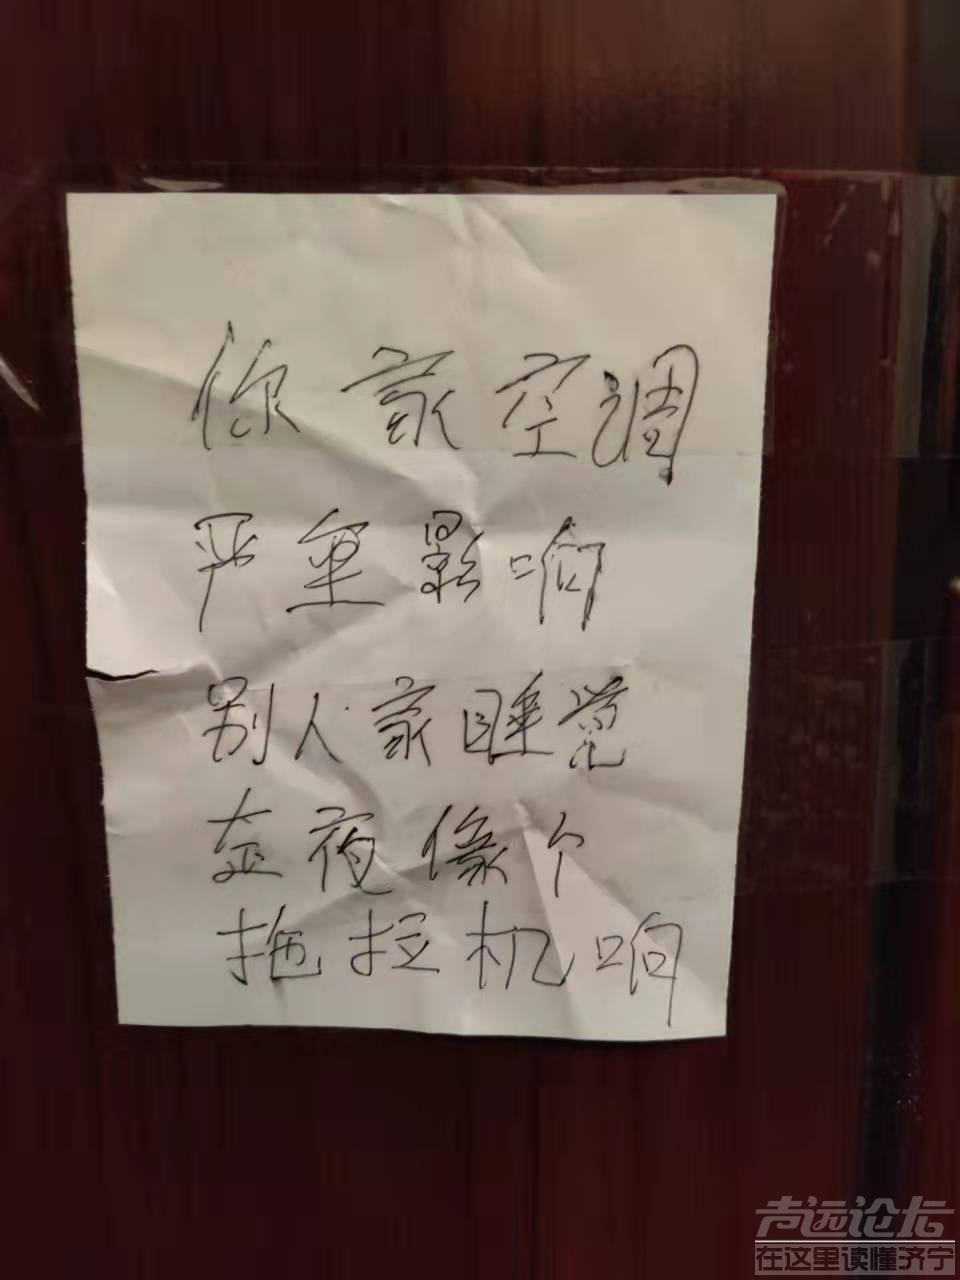 你家空调
严重影响
别人家睡觉
整夜像个
拖拉机响
声远论坛
在这里读懂济宁